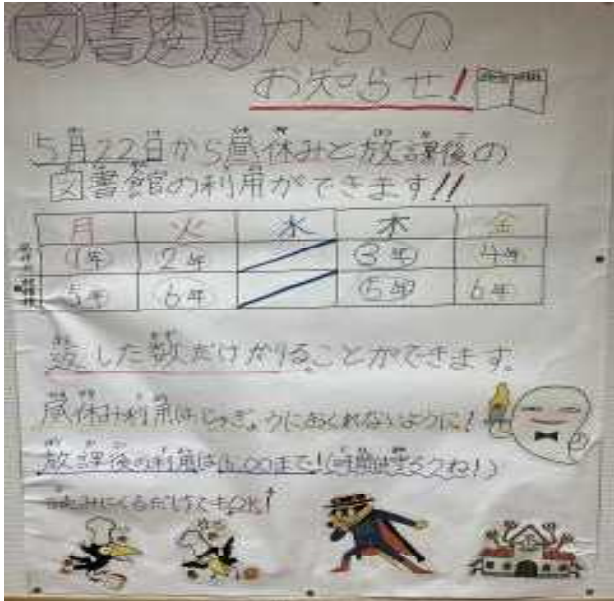 図書委員からの
お知らせ!
5月22日から昼休みと放課後の
図書館の利用ができます!!
月 火 水 木 金
①年 2年 ③年 4年
5年 6年 ⑤年 6年
返した数だけかりることができます。
昼休み利用はじゅぎょうにおくれないように!
放課後の利用は16:00まで!
読みにくるだけでもOK!